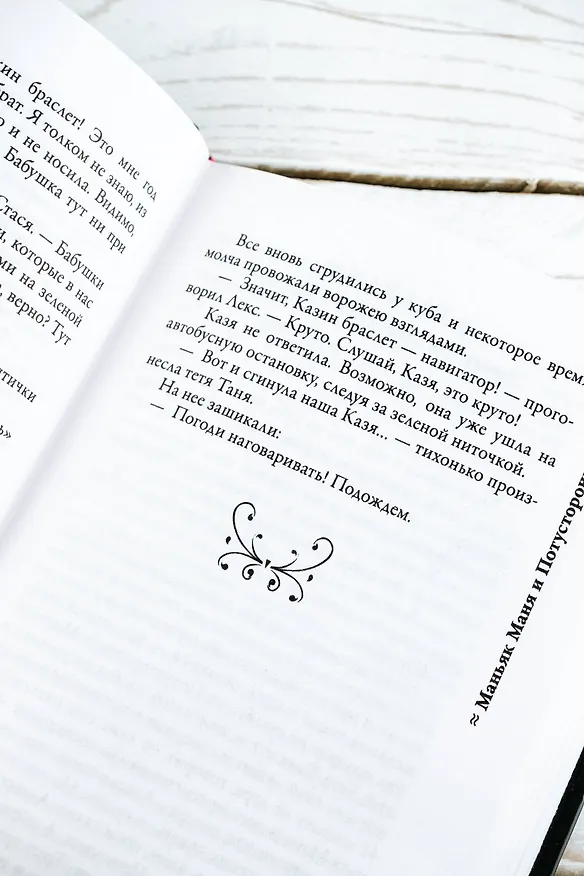 кин браслет! Это мне год
брат. Я толком не знаю, из
о и не носила. Видимо,
Бабушка тут ни при
Стася. — Бабушки
и, которые в нас
ми на зеленой
, верно? Тут
тички
ь»
Все вновь сгрудились у куба и некоторое время
молча провожали ворожею взглядами.
— Значит, Казин браслет — навигатор! — прого-
ворил Лекс. — Круто. Слушай, Казя, это круто!
Казя не ответила. Возможно, она уже ушла на
автобусную остановку, следуя за зеленой ниточкой.
— Вот и сгинула наша Казя... — тихонько произ-
несла тетя Таня.
На нее зашикали:
— Погоди наговаривать! Подождем.
≈ Маньяк Маня и Потусторон